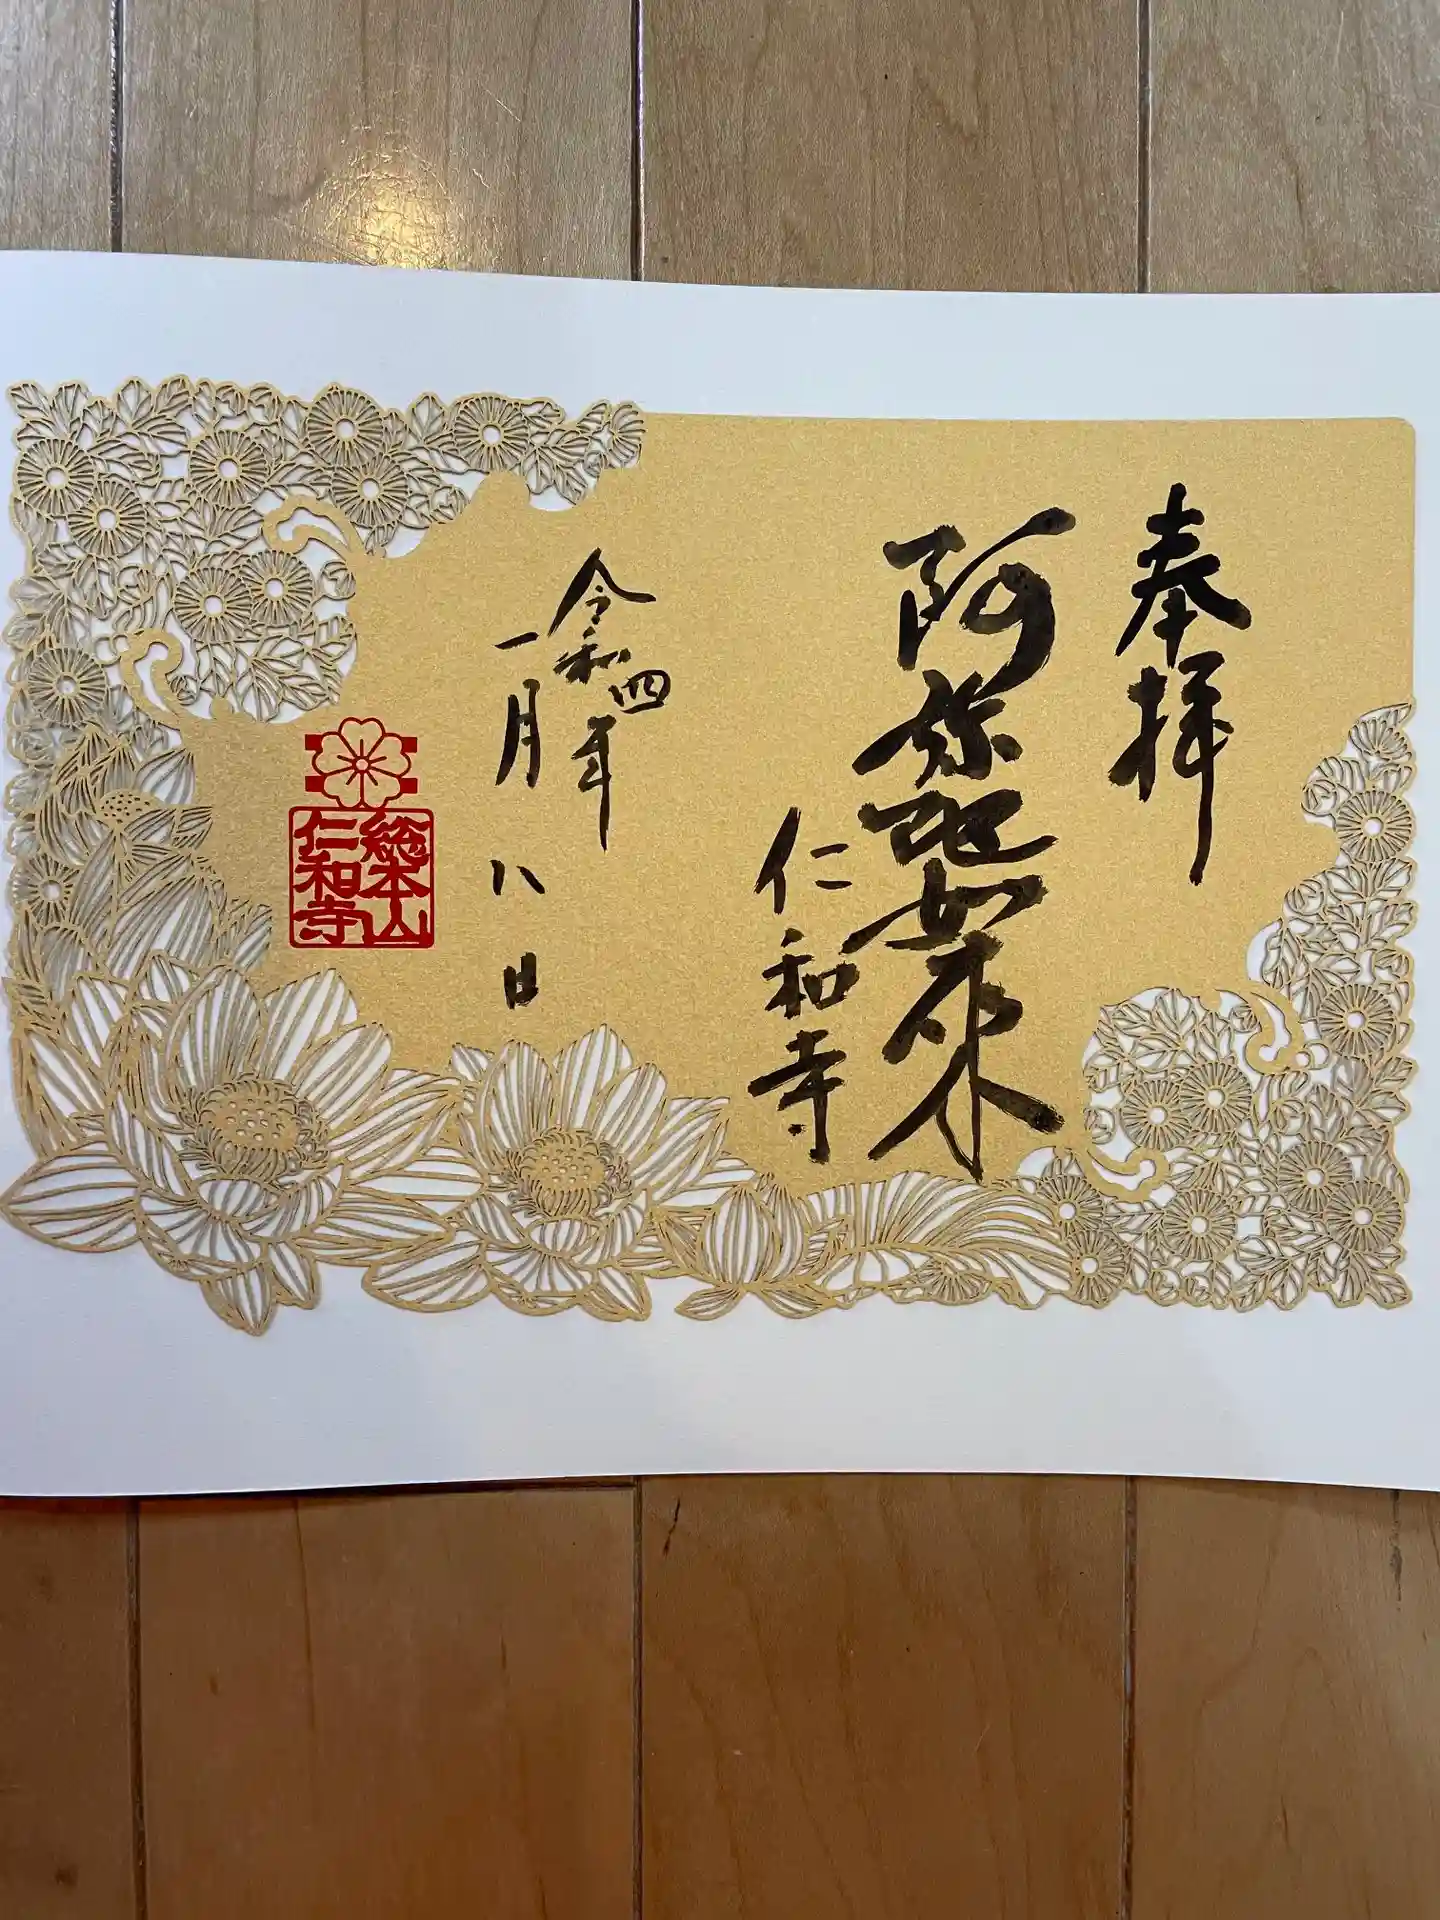 奉拝
阿弥陀如来
仁和寺
令和四年
一月八日
総本山
仁和寺